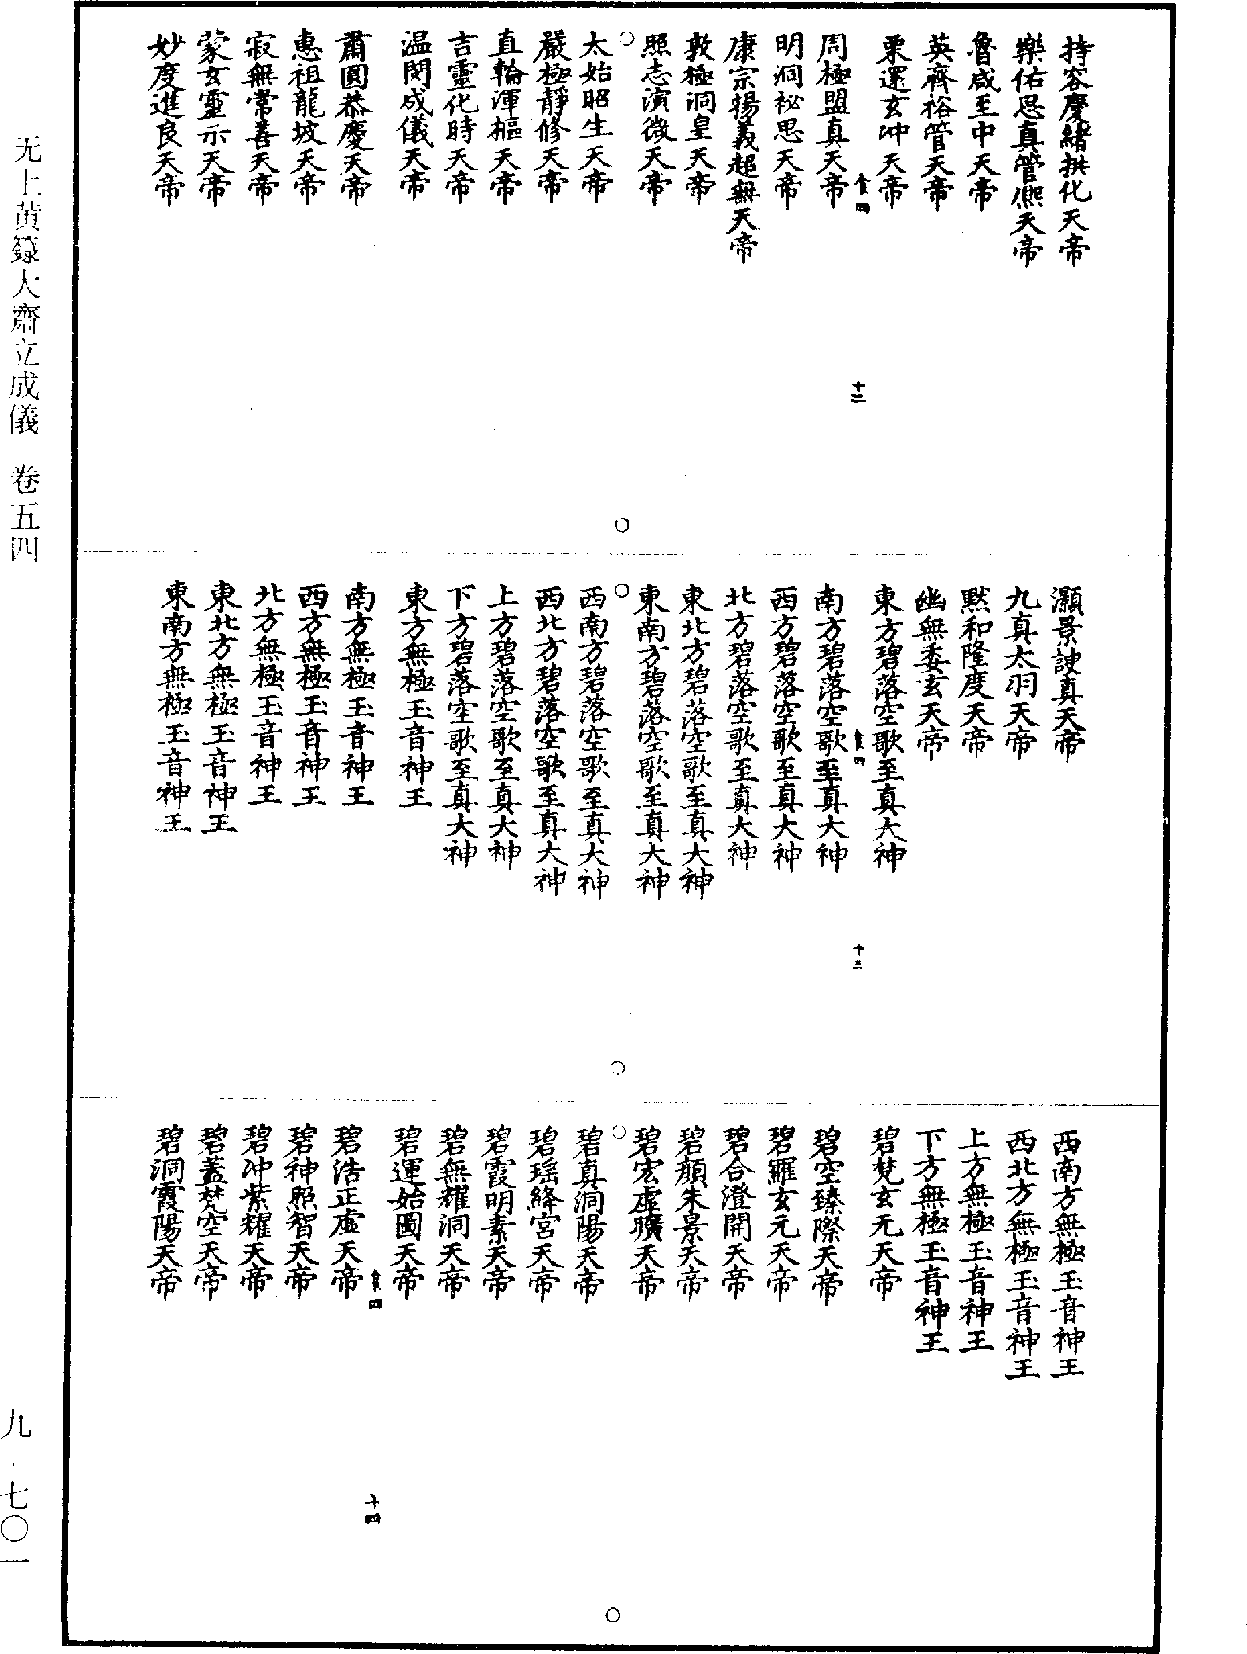 持容慶緒拱化天帝
樂佑思真管熈天帝
魯咸至中天帝
英齊裕管天帝
栗運玄冲天帝
周極盟真天帝
食四
十二
明洞祕思天帝
康宗揚義超無天帝
敦極洞皇天帝
照志演微天帝
太始昭生天帝
嚴極靜修天帝
直輪渾樞天帝
吉靈化時天帝
温閔成儀天帝
肅圓恭慶天帝
惠祖龍坡天帝
寂無常善天帝
蒙玄靈示天帝
妙度進良天帝
灝景諫真天帝
九真太羽天帝
黙和隆度天帝
幽無委玄天帝
東方碧落空歌至真大神
食四
十三
南方碧落空歌至真大神
西方碧落空歌至真大神
北方碧落空歌至真大神
東北方碧落空歌至真大神
東南方碧落空歌至真大神
西南方碧落空歌至真大神
西北方碧落空歌至真大神
上方碧落空歌至真大神
下方碧落空歌至真大神
東方無極玉音神王
南方無極玉音神王
西方無極玉音神王
北方無極玉音神王
東北方無極玉音神王
東南方無極玉音神王
西南方無極玉音神王
西北方無極玉音神王
上方無極玉音神王
下方無極玉音神王
碧梵玄元天帝
碧空臻際天帝
碧羅玄元天帝
碧合澄開天帝
碧顔朱景天帝
碧宏虛曠天帝
碧真洞陽天帝
碧瑶絳宮天帝
碧霞明素天帝
碧無耀洞天帝
碧運始圖天帝
食四
十四
碧浩正虛天帝
碧神照智天帝
碧冲紫耀天帝
碧蓋梵空天帝
碧洞霞陽天帝
无上黄籙大齋立成儀 卷五四
九-七〇一